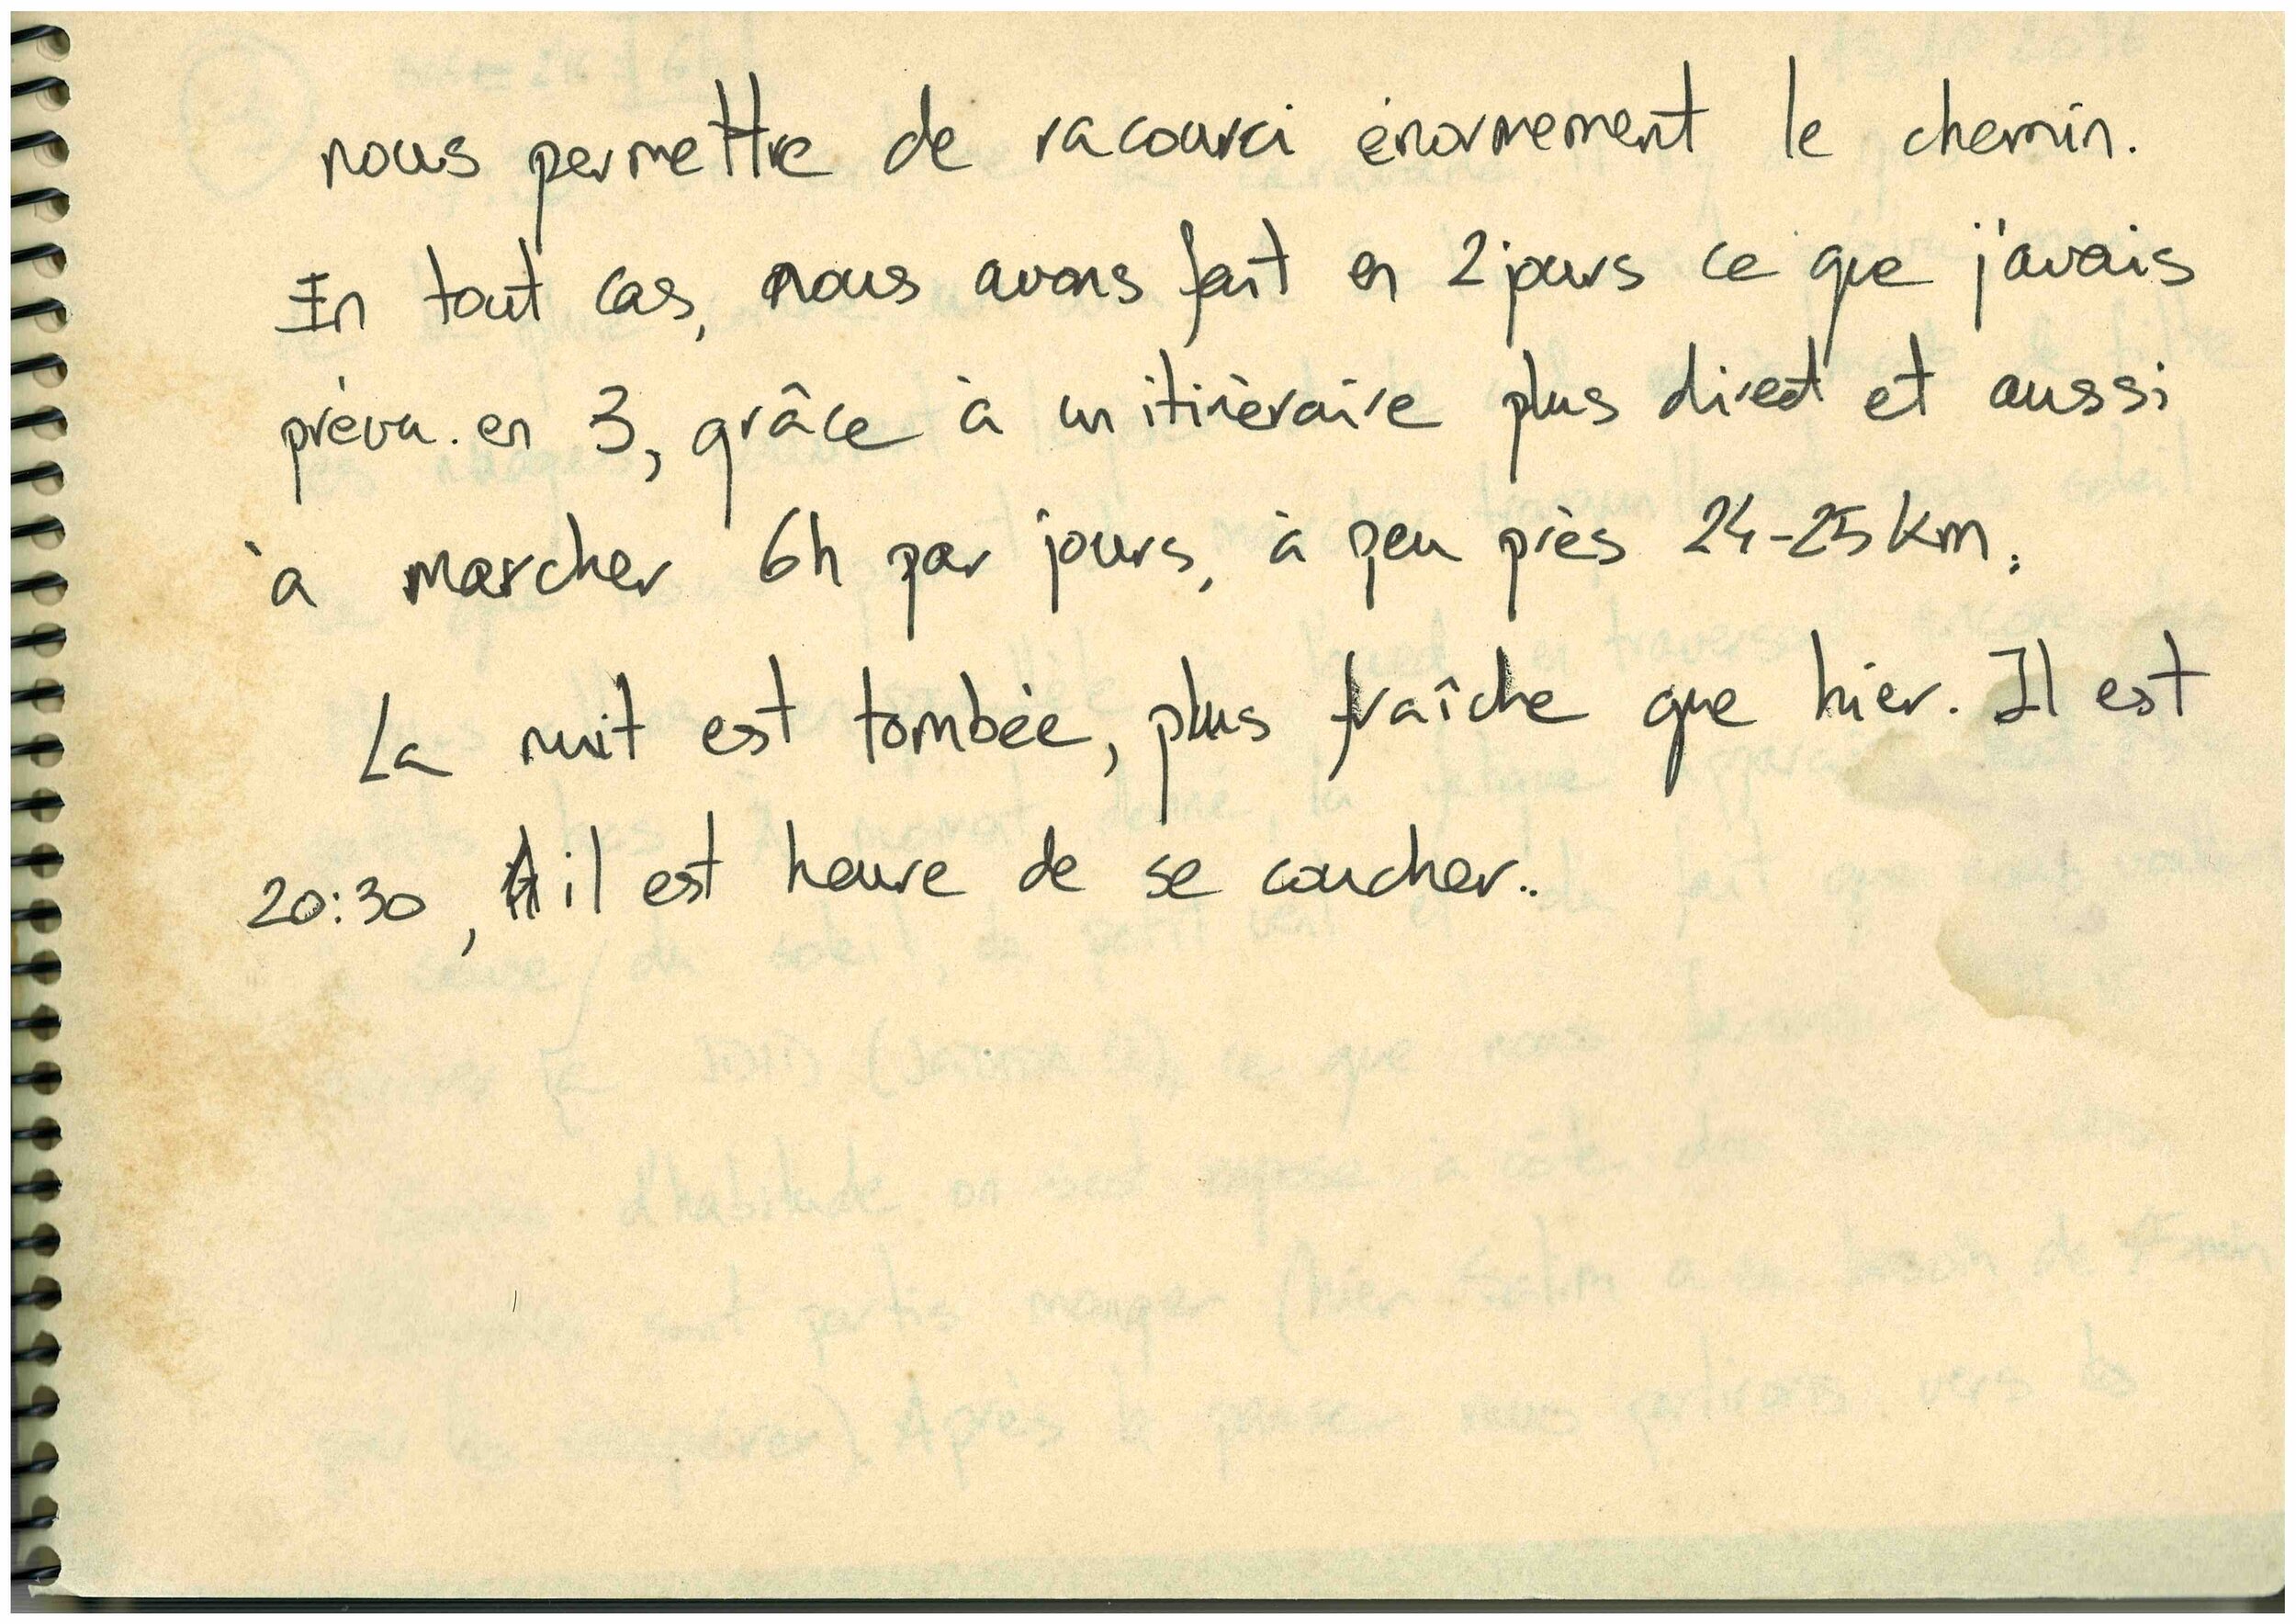 nous permettre de racourci énormement le chemin.
En tout cas, nous avons fait en 2 jours ce que j'avais
prévu. en 3, grâce à un itinéraire plus direct et aussi
à marcher 6h par jours, à peu près 24-25 km.
La nuit est tombée, plus fraîche que hier. Il est
20:30, il est heure de se coucher..